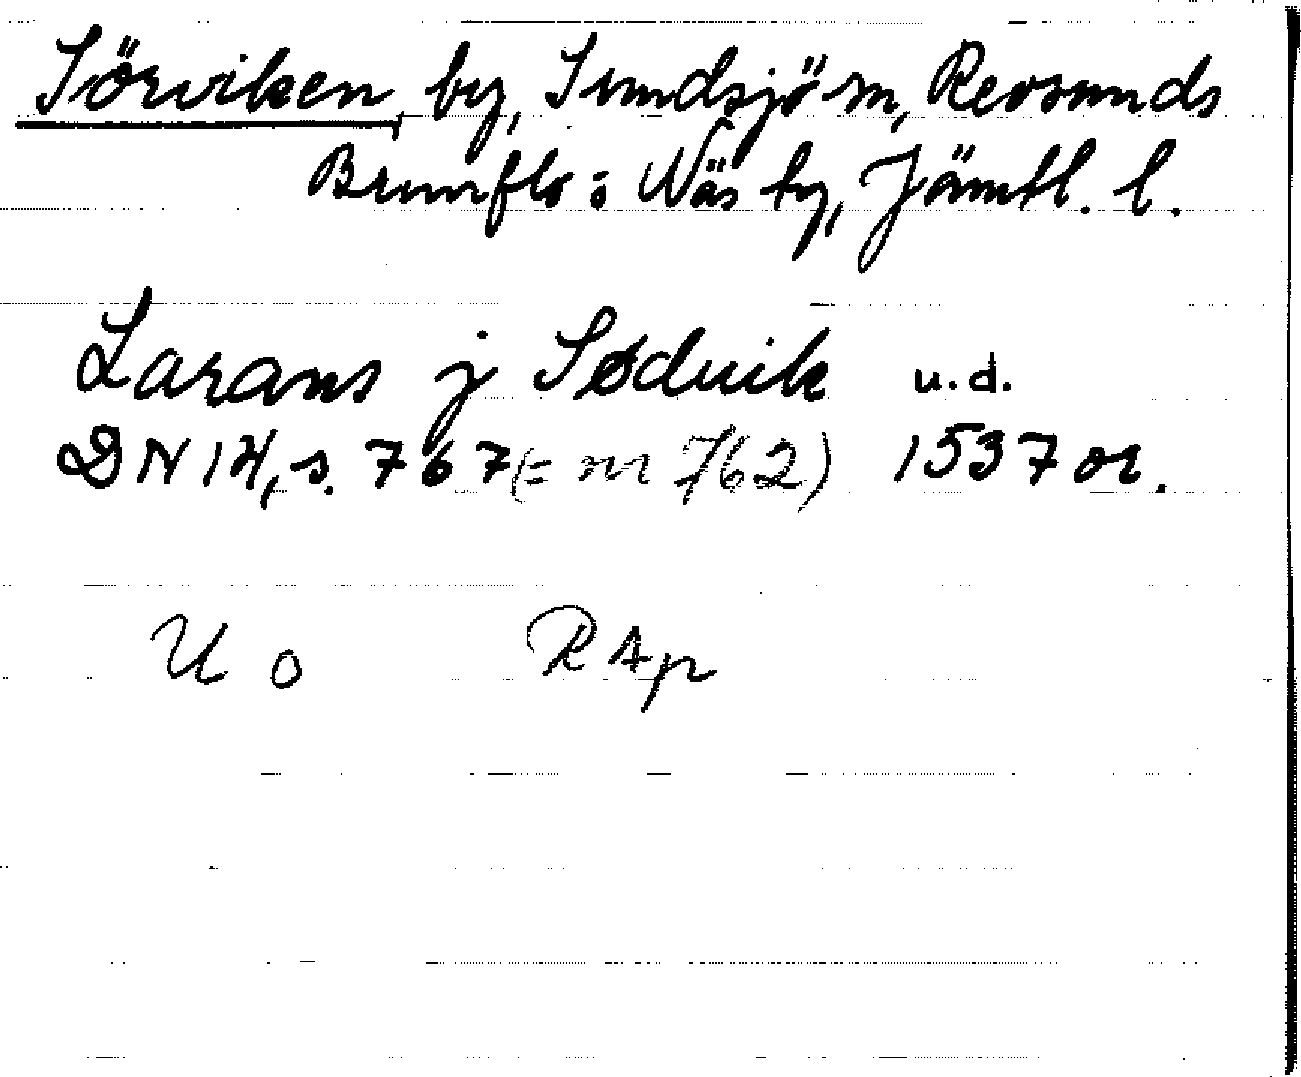 Sörviken, by, Sundsjö sn, Revsunds
Brunflo o Näs tg, Jämtl. l.
Larans j Søduik u.d.
DN 14, s. 767 (= nr 762) 1537 or.
U o RAp